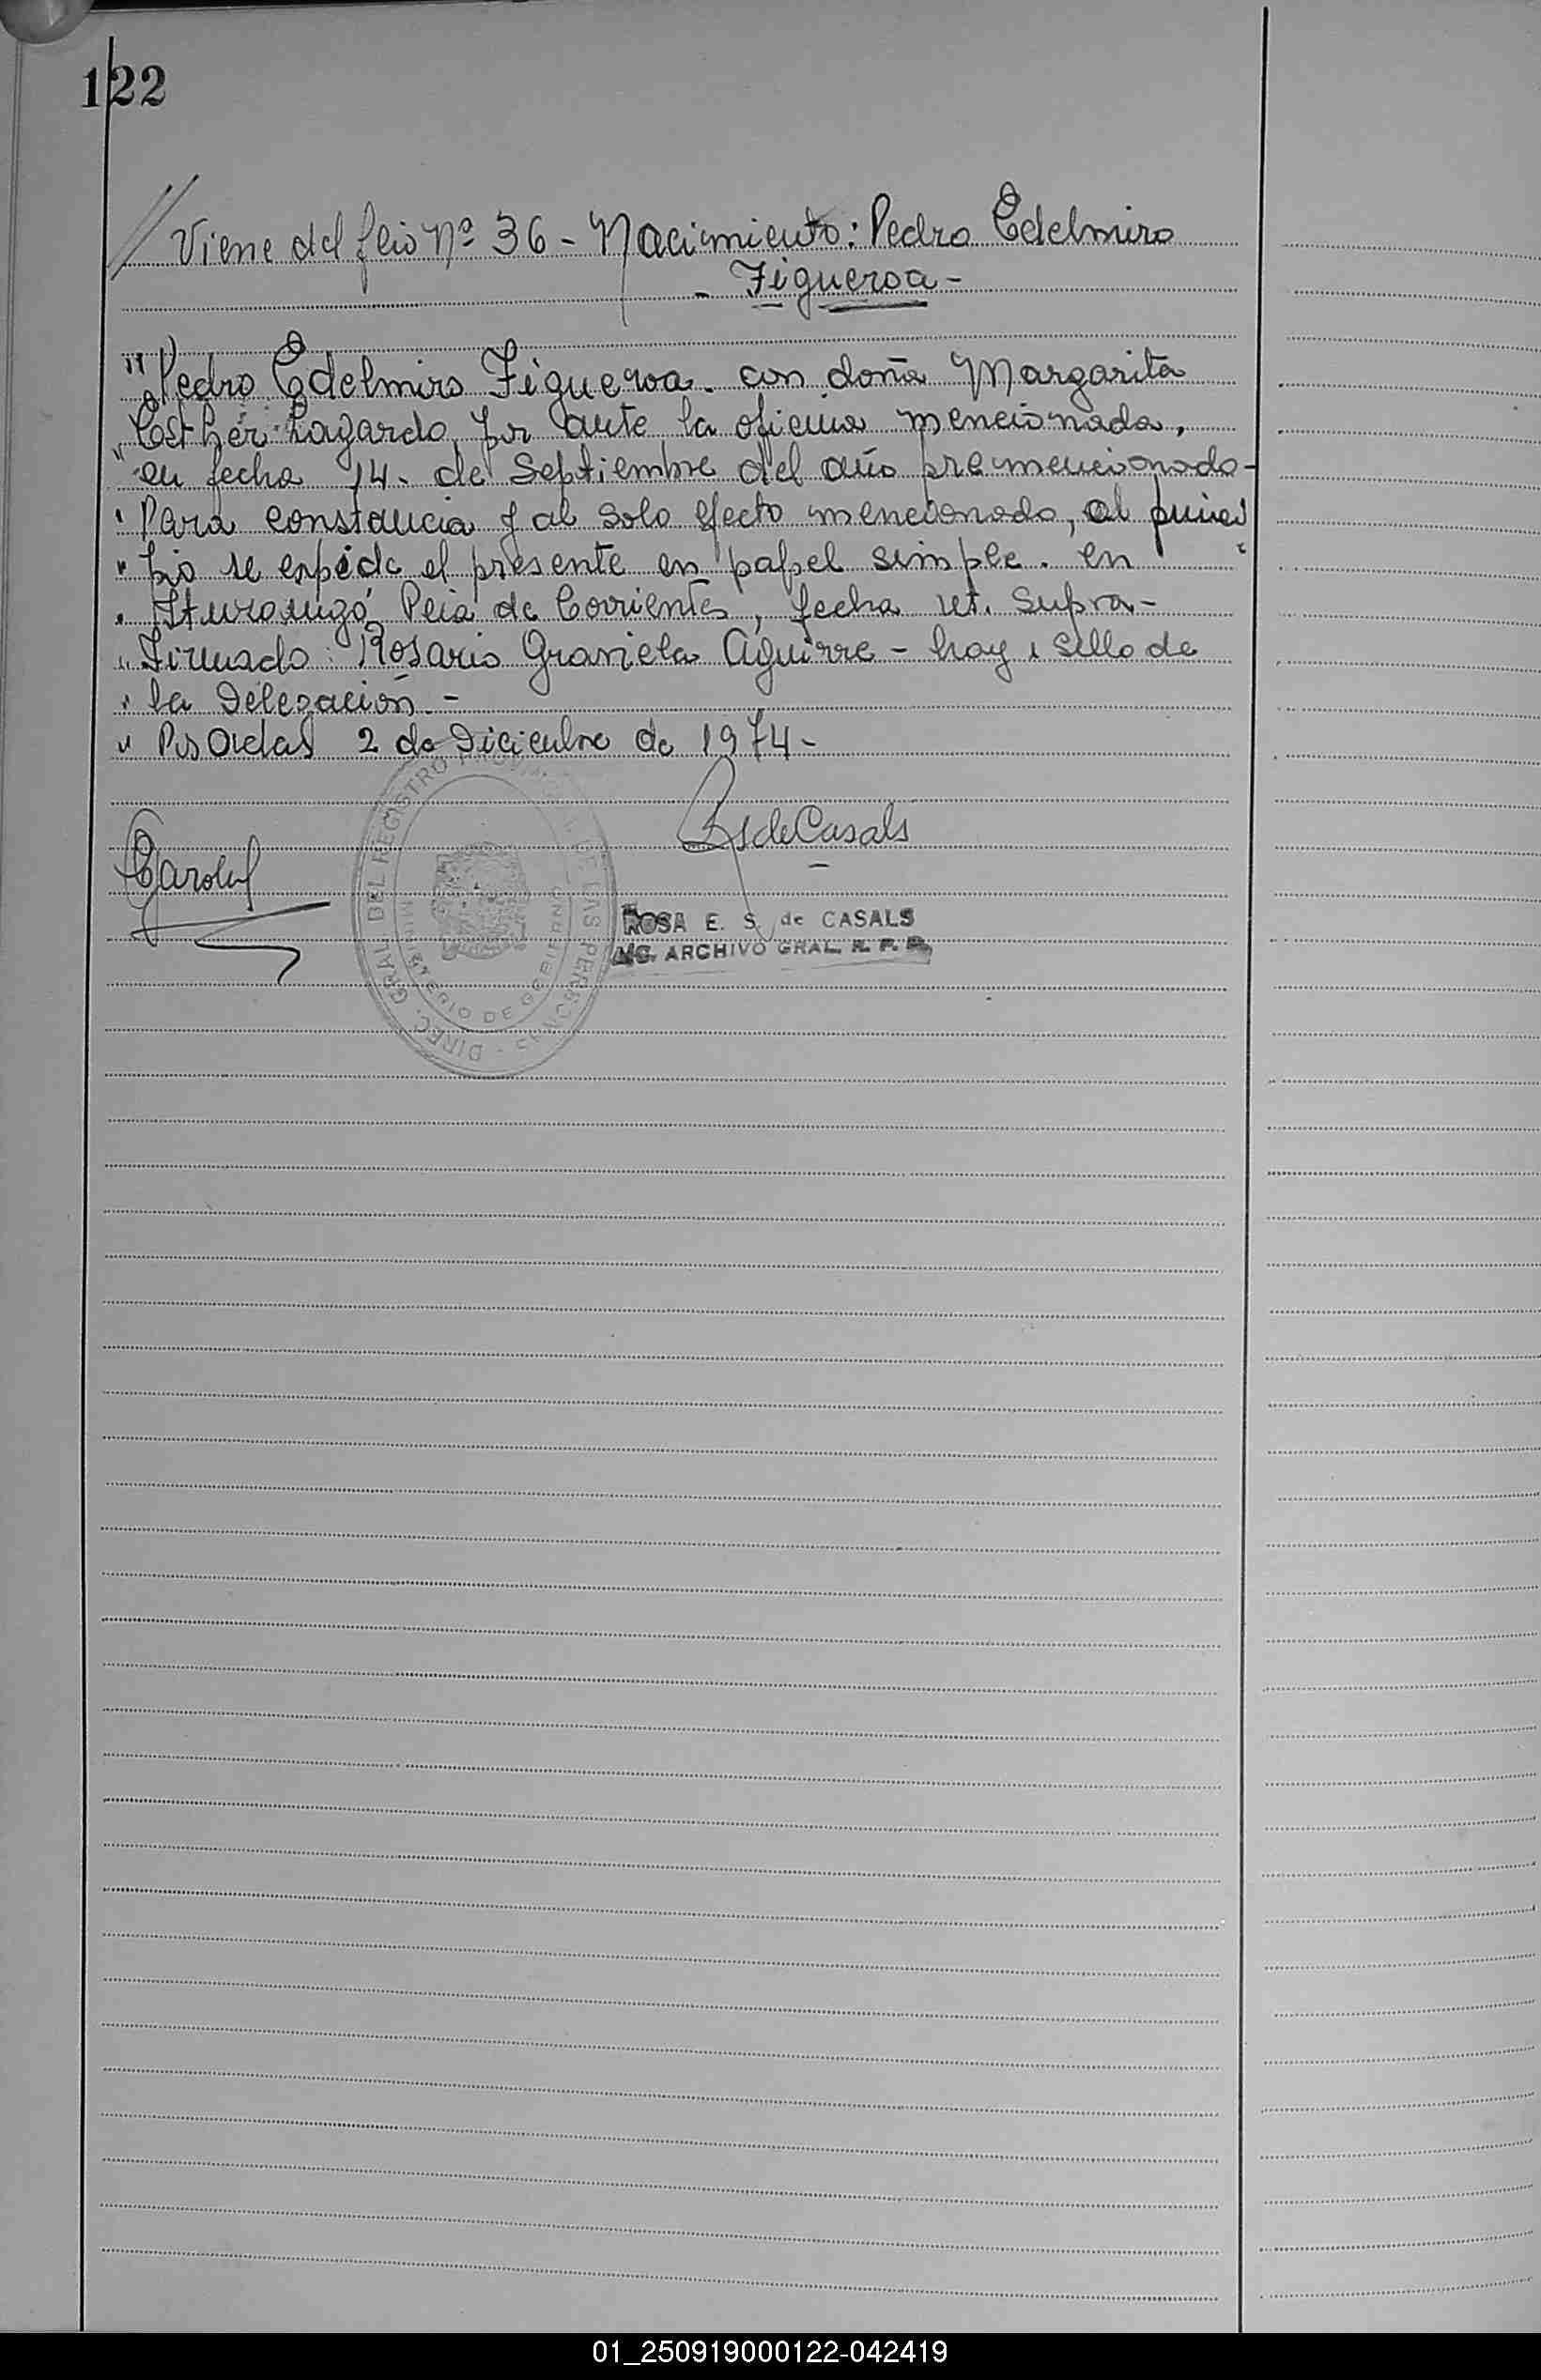 122
// Viene del flio Nº 36 - Nacimiento: Pedro Edelmiro
- Figueroa -
" Pedro Edelmiro Figueroa. con doña Margarita
" Esther Lagardo, por ante la oficina mencionada,
" en fecha 14. de Septiembre del año premencionado-
" Para constancia y al solo efecto mencionado, al princi
" pio se expide el presente en papel simple. en "
" Ituzaingó Pcia de Corrientes, fecha ut. supra-
" Firmado: Rosario Graniela Aguirre - hay 1 sello de
" la Delegación. -
" Posadas 2 de Diciembre de 1974-
DIREC. GRAL. DEL REGISTRO PROVINCIAL DE LAS PERSONAS
MINISTERIO DE GOBIERNO
RsdeCasals
ROSA E. S. de CASALS
ENC. ARCHIVO GRAL. R. P. P.
01_250919000122-042419